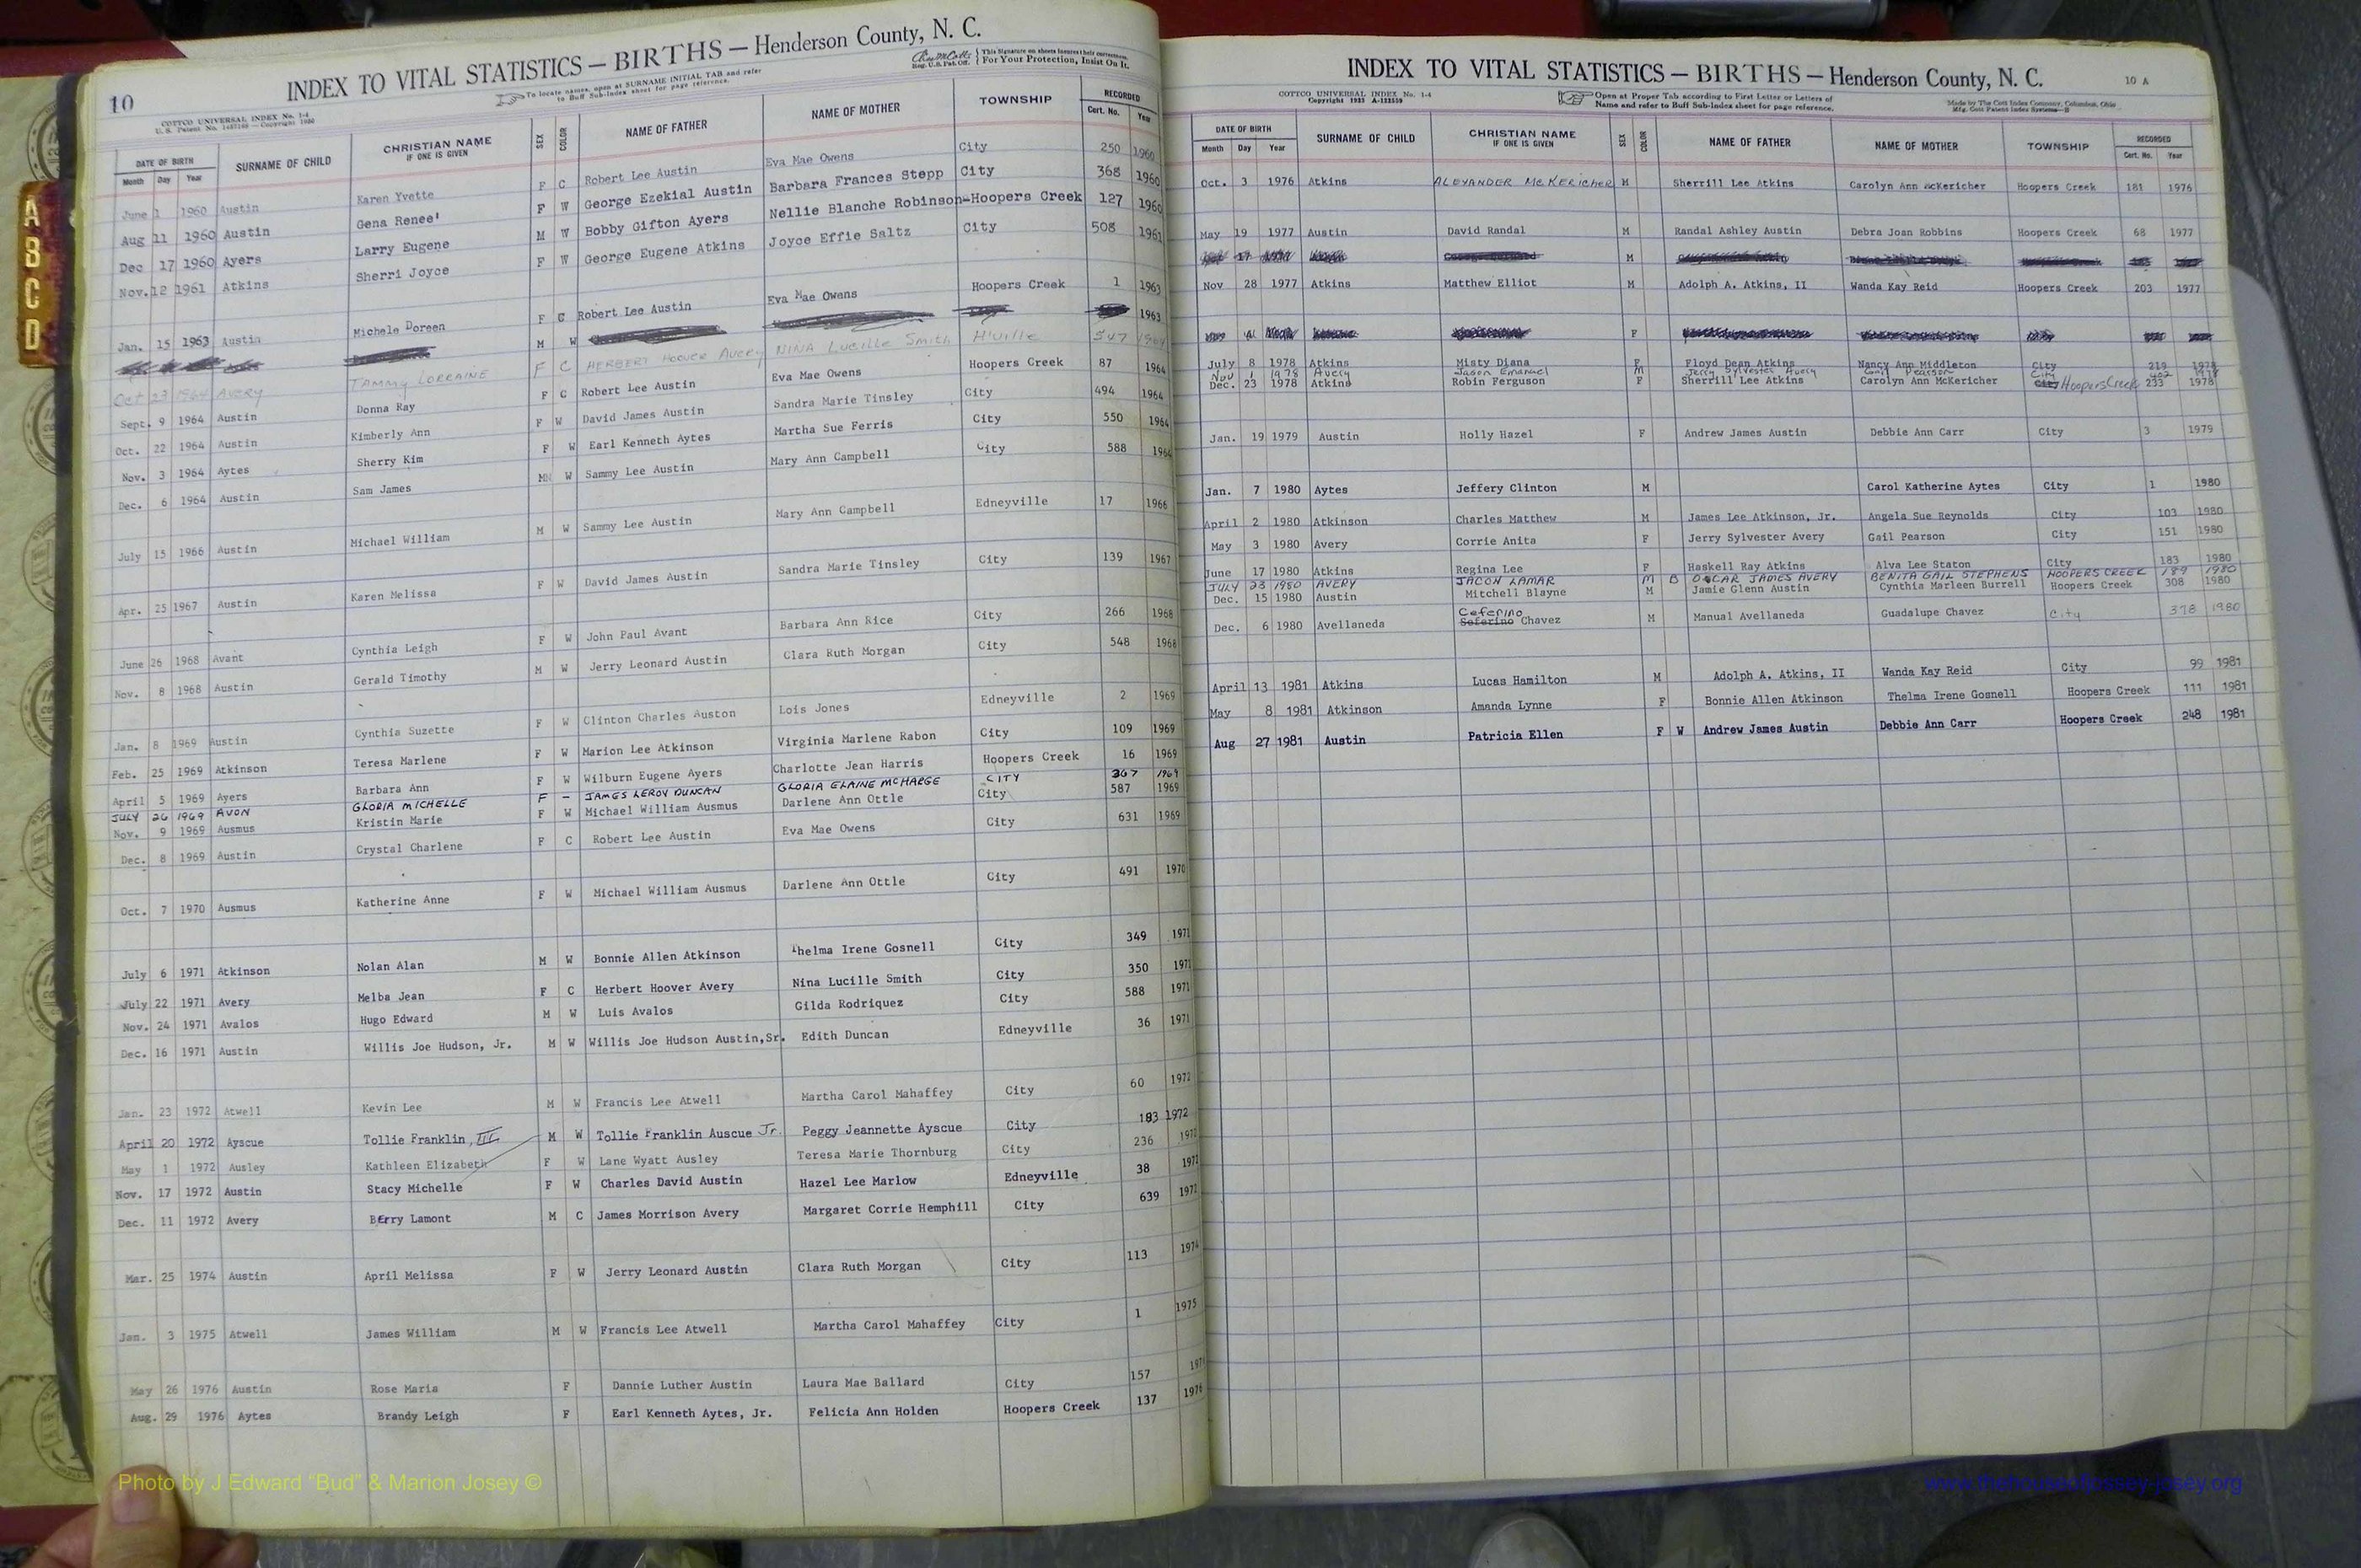 INDEX TO VITAL STATISTICS — BIRTHS — Henderson County, N. C.
10
COTTCO UNIVERSAL INDEX No. 1-4
To locate names, open at SURNAME INITIAL TAB and refer
to Buff Sub-Index sheet for page reference.
Reg. U.S. Pat. Off.
For Your Protection, Insist On It.
DATE OF BIRTH SURNAME OF CHILD CHRISTIAN NAME IF ONE IS GIVEN SEX COLOR NAME OF FATHER NAME OF MOTHER TOWNSHIP RECORDED
Month Day Year Cert. No. Year
June 1 1960 Austin Karen Yvette F C Robert Lee Austin Eva Mae Owens City 250 1960
Aug 11 1960 Austin Gena Renee' F W George Ezekial Austin Barbara Frances Stepp City 368 1960
Dec 17 1960 Ayers Larry Eugene M W Bobby Gifton Ayers Nellie Blanche Robinson-Hoopers Creek 127 1960
Nov. 12 1961 Atkins Sherri Joyce F W George Eugene Atkins Joyce Effie Saltz City 508 1961
Jan. 15 1963 Austin Michele Doreen F C Robert Lee Austin Eva Mae Owens Hoopers Creek 1 1963
M W 1963
Oct 23 1964 AVERY TAMMY LORRAINE F C HERBERT HOOVER AVERY NINA Lucille Smith H'ville 547 1964
Sept. 9 1964 Austin Donna Kay F C Robert Lee Austin Eva Mae Owens Hoopers Creek 87 1964
Oct. 22 1964 Austin Kimberly Ann F W David James Austin Sandra Marie Tinsley City 494 1964
Nov. 3 1964 Aytes Sherry Kim F W Earl Kenneth Aytes Martha Sue Ferris City 550 1964
Dec. 6 1964 Austin Sam James W Sammy Lee Austin Mary Ann Campbell City 588 1964
July 15 1966 Austin Michael William M W Sammy Lee Austin Mary Ann Campbell Edneyville 17 1966
Apr. 25 1967 Austin Karen Melissa F W David James Austin Sandra Marie Tinsley City 139 1967
June 26 1968 Avant Cynthia Leigh F W John Paul Avant Barbara Ann Rice City 266 1968
Nov. 8 1968 Austin Gerald Timothy M W Jerry Leonard Austin Clara Ruth Morgan City 548 1968
Jan. 8 1969 Austin Cynthia Suzette F W Clinton Charles Auston Lois Jones Edneyville 2 1969
Feb. 25 1969 Atkinson Teresa Marlene F W Marion Lee Atkinson Virginia Marlene Rabon City 109 1969
April 5 1969 Ayers Barbara Ann F W Wilburn Eugene Ayers Charlotte Jean Harris Hoopers Creek 16 1969
JULY 26 1969 AVON GLORIA MICHELLE F — JAMES LEROY DUNCAN GLORIA ELAINE McHARGE CITY 367 1969
Nov. 9 1969 Ausmus Kristin Marie F W Michael William Ausmus Darlene Ann Ottle City 587 1969
Dec. 8 1969 Austin Crystal Charlene F C Robert Lee Austin Eva Mae Owens City 631 1969
Oct. 7 1970 Ausmus Katherine Anne F W Michael William Ausmus Darlene Ann Ottle City 491 1970
July 6 1971 Atkinson Nolan Alan M W Bonnie Allen Atkinson Thelma Irene Gosnell City 349 1971
July 22 1971 Avery Melba Jean F C Herbert Hoover Avery Nina Lucille Smith City 350 1971
Nov. 24 1971 Avalos Hugo Edward M W Luis Avalos Gilda Rodriquez City 588 1971
Dec. 16 1971 Austin Willis Joe Hudson, Jr. M W Willis Joe Hudson Austin,Sr. Edith Duncan Edneyville 36 1971
Jan. 23 1972 Atwell Kevin Lee M W Francis Lee Atwell Martha Carol Mahaffey City 60 1972
April 20 1972 Ayscue Tollie Franklin, III M W Tollie Franklin Auscue Jr. Peggy Jeannette Ayscue City 183 1972
May 1 1972 Ausley Kathleen Elizabeth F W Lane Wyatt Ausley Teresa Marie Thornburg City 236 1972
Nov. 17 1972 Austin Stacy Michelle F W Charles David Austin Hazel Lee Marlow Edneyville 38 1972
Dec. 11 1972 Avery BErry Lamont M C James Morrison Avery Margaret Corrie Hemphill City 639 1972
Mar. 25 1974 Austin April Melissa F W Jerry Leonard Austin Clara Ruth Morgan City 113 1974
Jan. 3 1975 Atwell James William M W Francis Lee Atwell Martha Carol Mahaffey City 1 1975
May 26 1976 Austin Rose Maria F Dannie Luther Austin Laura Mae Ballard City 157
Aug. 29 1976 Aytes Brandy Leigh F Earl Kenneth Aytes, Jr. Felicia Ann Holden Hoopers Creek 137 1976
INDEX TO VITAL STATISTICS — BIRTHS — Henderson County, N. C.
10 A
COTTCO UNIVERSAL INDEX No. 1-4
Open at Proper Tab according to First Letter or Letters of
Name and refer to Buff Sub-Index sheet for page reference.
Made by The Cott Index Company, Columbus, Ohio
DATE OF BIRTH SURNAME OF CHILD CHRISTIAN NAME IF ONE IS GIVEN SEX COLOR NAME OF FATHER NAME OF MOTHER TOWNSHIP RECORDED
Month Day Year Cert. No. Year
Oct. 3 1976 Atkins ALEXANDER McKERICHER M Sherrill Lee Atkins Carolyn Ann McKericher Hoopers Creek 181 1976
May 19 1977 Austin David Randal M Randal Ashley Austin Debra Joan Robbins Hoopers Creek 68 1977
M
Nov 28 1977 Atkins Matthew Elliot M Adolph A. Atkins, II Wanda Kay Reid Hoopers Creek 203 1977
F
July 8 1978 Atkins Misty Diana F Floyd Dean Atkins Nancy Ann Middleton City 219 1978
Nov 1 1978 Avery Jason Emanuel M Jerry Sylvester Avery Gail Pearson City 402 1978
Dec. 23 1978 Atkins Robin Ferguson F Sherrill Lee Atkins Carolyn Ann McKericher City Hoopers Creek 233 1978
Jan. 19 1979 Austin Holly Hazel F Andrew James Austin Debbie Ann Carr City 3 1979
Jan. 7 1980 Aytes Jeffery Clinton M Carol Katherine Aytes City 1 1980
April 2 1980 Atkinson Charles Matthew M James Lee Atkinson, Jr. Angela Sue Reynolds City 103 1980
May 3 1980 Avery Corrie Anita F Jerry Sylvester Avery Gail Pearson City 151 1980
June 17 1980 Atkins Regina Lee F Haskell Ray Atkins Alva Lee Staton City 183 1980
JULY 23 1980 AVERY JACON LAMAR M B OSCAR JAMES AVERY BENITA GAIL STEPHENS HOOPERS CREEK 189 1980
Dec. 15 1980 Austin Mitchell Blayne M Jamie Glenn Austin Cynthia Marleen Burrell Hoopers Creek 308 1980
Ceferino
Dec. 6 1980 Avellaneda Seferino Chavez M Manual Avellaneda Guadalupe Chavez City 378 1980
April 13 1981 Atkins Lucas Hamilton M Adolph A. Atkins, II Wanda Kay Reid City 99 1981
May 8 1981 Atkinson Amanda Lynne F Bonnie Allen Atkinson Thelma Irene Gosnell Hoopers Creek 111 1981
Aug 27 1981 Austin Patricia Ellen F W Andrew James Austin Debbie Ann Carr Hoopers Creek 248 1981
A
B
C
D
Photo by J Edward "Bud" & Marion Josey ©
www.thehouseofjossey-josey.org